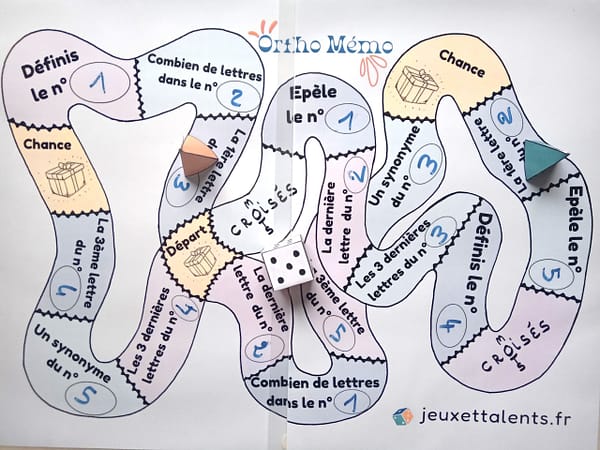 Ortho Mémo
Définis
le n° 1
Combien de lettres
dans le n° 2
La 1ère lettre
3
Chance
La 3ème lettre
du n° 4
Un synonyme
du n° 5
Les 3 dernières
lettres du n° 4
Départ
MOTS
CROISÉS
Epèle
le n° 1
La dernière
lettre du n° 2
La dernière
lettre du n° 2
3ème lettre
du n° 5
Combien de lettres
dans le n° 1
Les 3 dernières
lettres du n° 3
Un synonyme
du n° 3
Chance
La 1ère lettre
2
Epèle le n°
5
Définis le n°
4
MOTS
CROISÉS
jeuxettalents.fr